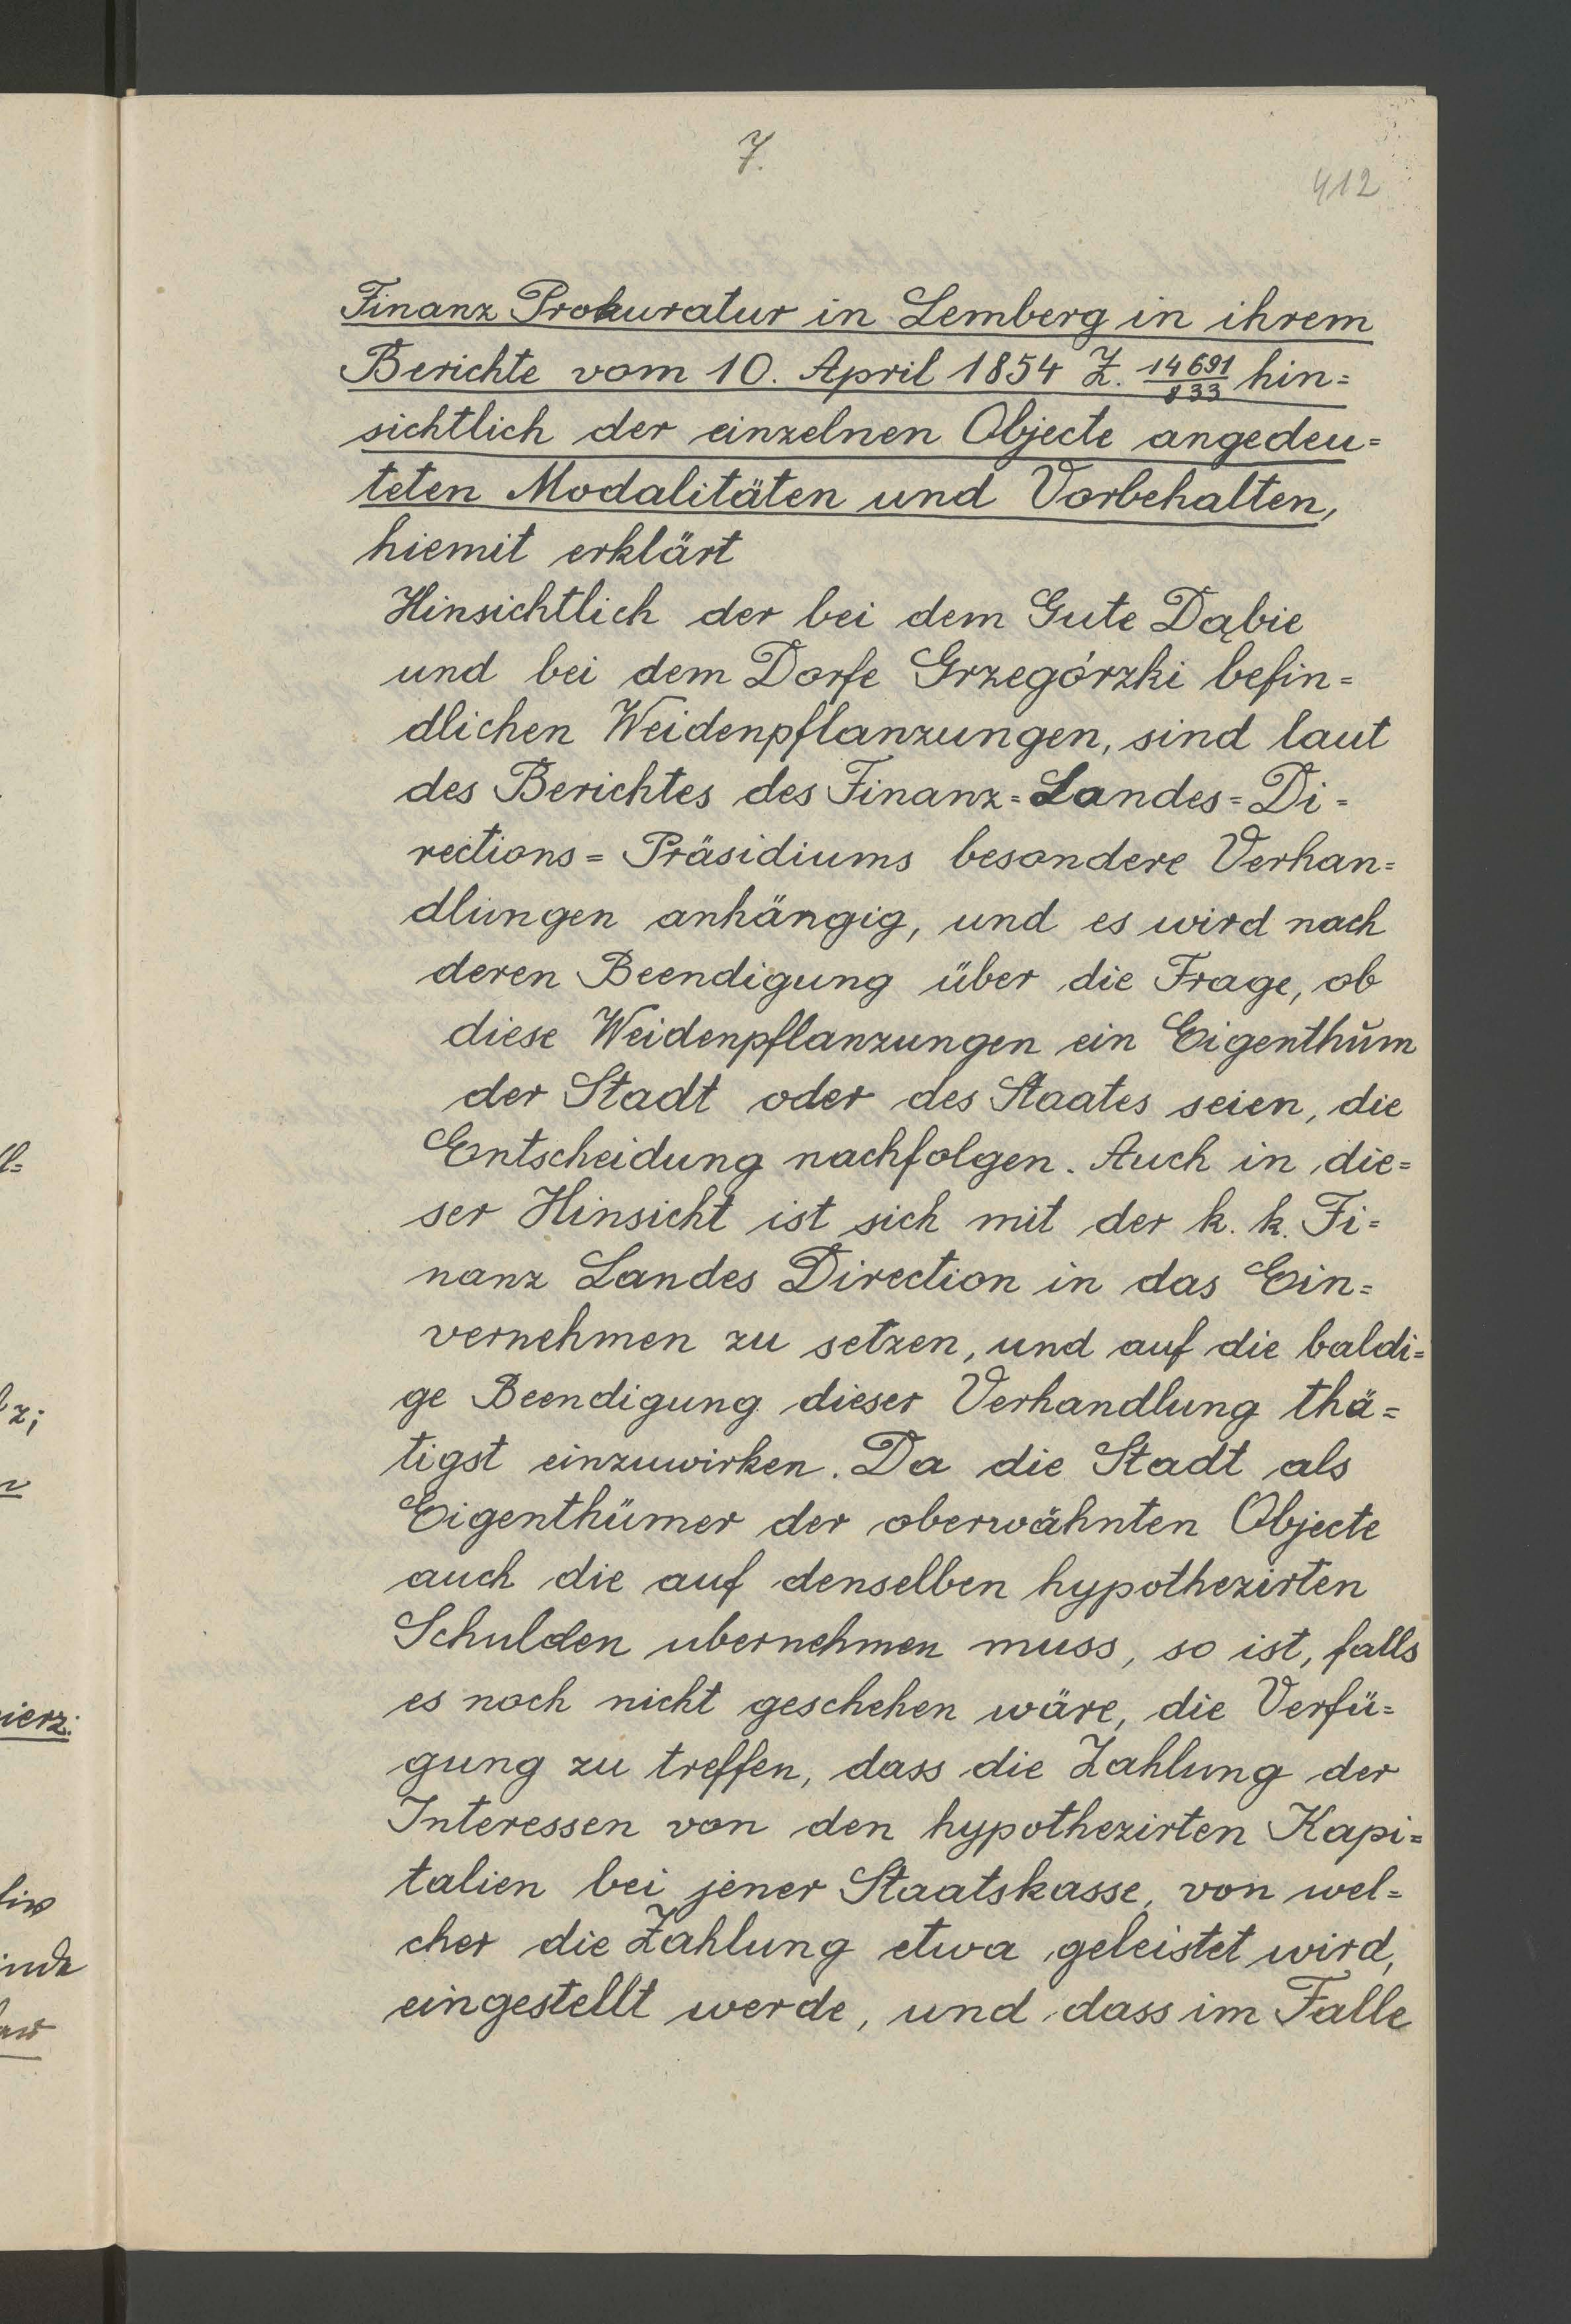 7.
412
Finanz Prokuratur in Lemberg in ihrem
Berichte vom 10. April 1854 Z. 14691/833 hin=
sichtlich der einzelnen Objecte angedeu=
teten Modalitäten und Vorbehalten,
hiemit erklärt
Hinsichtlich der bei dem Gute Dąbie
und bei dem Dorfe Grzegórzki befin=
dlichen Weidenpflanzungen, sind laut
des Berichtes des Finanz=Landes=Di=
rections=Präsidiums besondere Verhan=
dlungen anhängig, und es wird nach
deren Beendigung über die Frage, ob
diese Weidenpflanzungen ein Eigenthŭm
der Stadt oder des Staates seien, die
Entscheidung nachfolgen. Auch in die=
ser Hinsicht ist sich mit der k. k. Fi=
nanz Landes Direction in das Ein=
vernehmen zu setzen, und auf die baldi=
ge Beendigung dieser Verhandlung thä=
tigst einzuwirken. Da die Stadt als
Eigenthümer der oberwähnten Objecte
auch die auf denselben hypothezirten
Schulden ubernehmen muss, so ist, falls
es noch nicht geschehen wäre, die Verfü=
gung zu treffen, dass die Zahlung der
Interessen von den hypothezirten Kapi=
talien bei jener Staatskasse, von wel=
cher die Zahlung etwa geleistet wird,
eingestellt werde, und dass im Falle